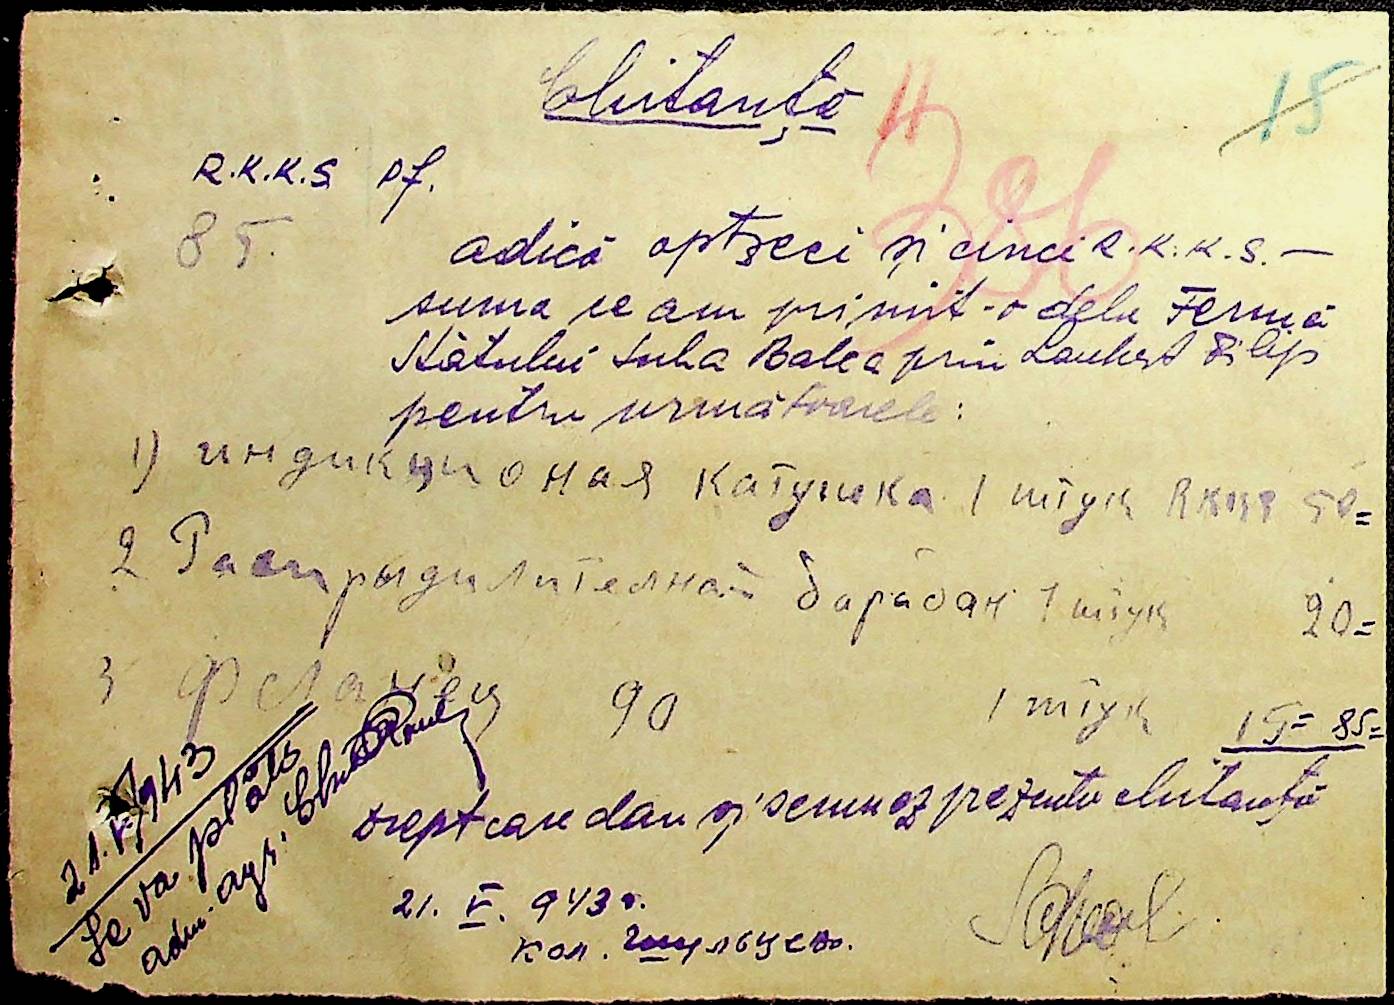 Chitanță
15
386
R.K.K.S pf.
85.
adică optzeci și cinci R.K.K.S. —
suma ce am primit-o dela Ferma
Statului Suha Balca prin Filip
pentru următoarele:
1) индикционая катушка 1 штук RKKS 50=
2 Распрыдилителнай барабан 1 штук 20=
3 Фсланец 90 1 штук 15= 85=
drept care dau și semnez prezenta chitanță
21. V. 943 г.
кол.
21.V.943
Se va plăti
adm. agr.